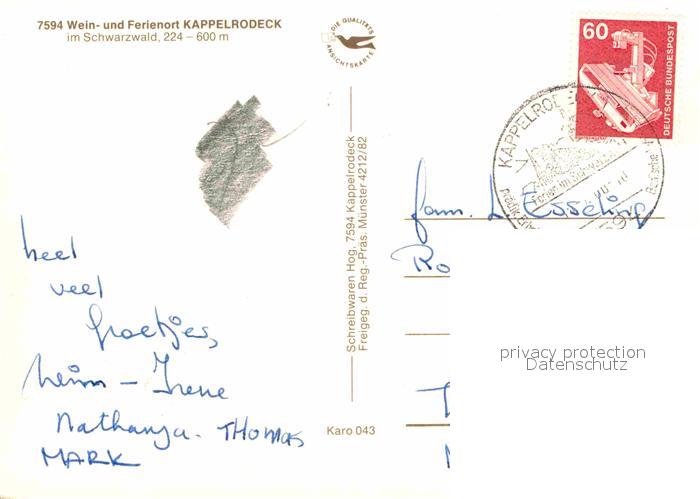 7594 Wein- und Ferienort KAPPELRODECK
im Schwarzwald, 224 – 600 m
DIE QUALITÄTS
ANSICHTSKARTE
60
DEUTSCHE BUNDESPOST
KAPPELRODECK
Ferien im Schwarzwald
heel
veel
Groetjes,
heim – Irene
Nathanja. THOMAS
MARK
Schreibwaren Hog, 7594 Kappelrodeck
Freigeg. d. Reg.-Präs. Münster 4212/82
Karo 043
fam. L Esseling
Ro
privacy protection
Datenschutz